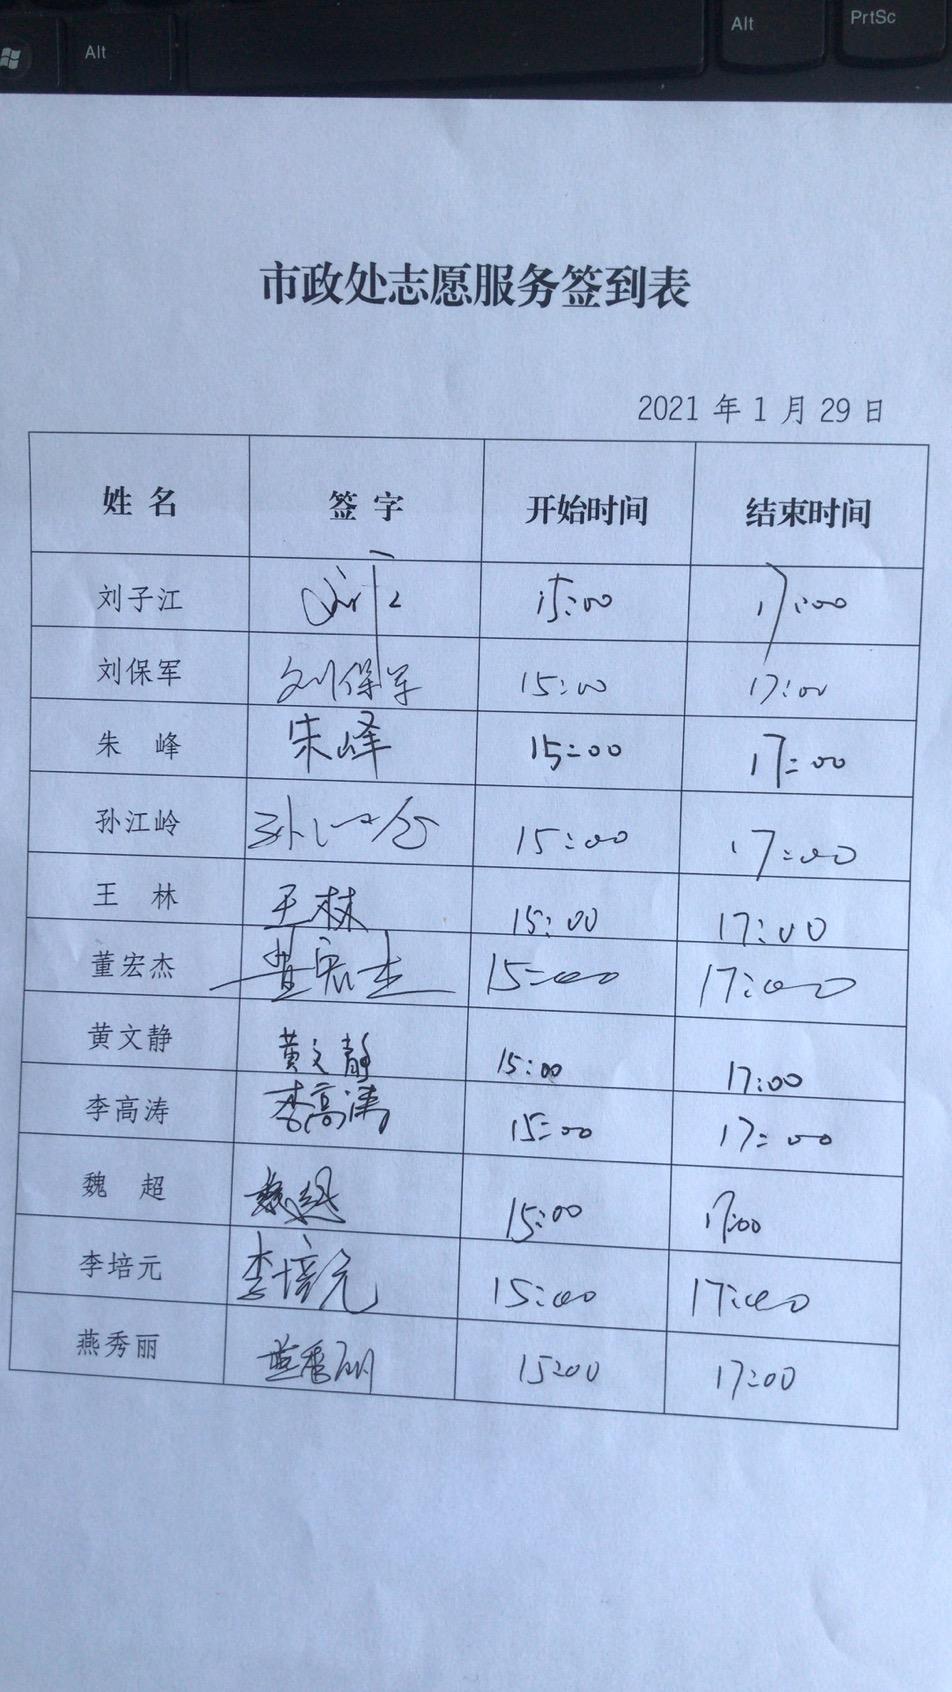 Alt
Alt
PrtSc
市政处志愿服务签到表
2021 年 1 月 29 日
姓 名 签 字 开始时间 结束时间
刘子江 15:00 17:00
刘保军 刘保军 15:00 17:00
朱 峰 朱峰 15:00 17:00
孙江岭 孙江岭 15:00 17:00
王 林 王林 15:00 17:00
董宏杰 董宏杰 15:00 17:00
黄文静 黄文静 15:00 17:00
李高涛 李高涛 15:00 17:00
魏 超 魏超 15:00 17:00
李培元 李培元 15:00 17:00
燕秀丽 燕秀丽 15:00 17:00